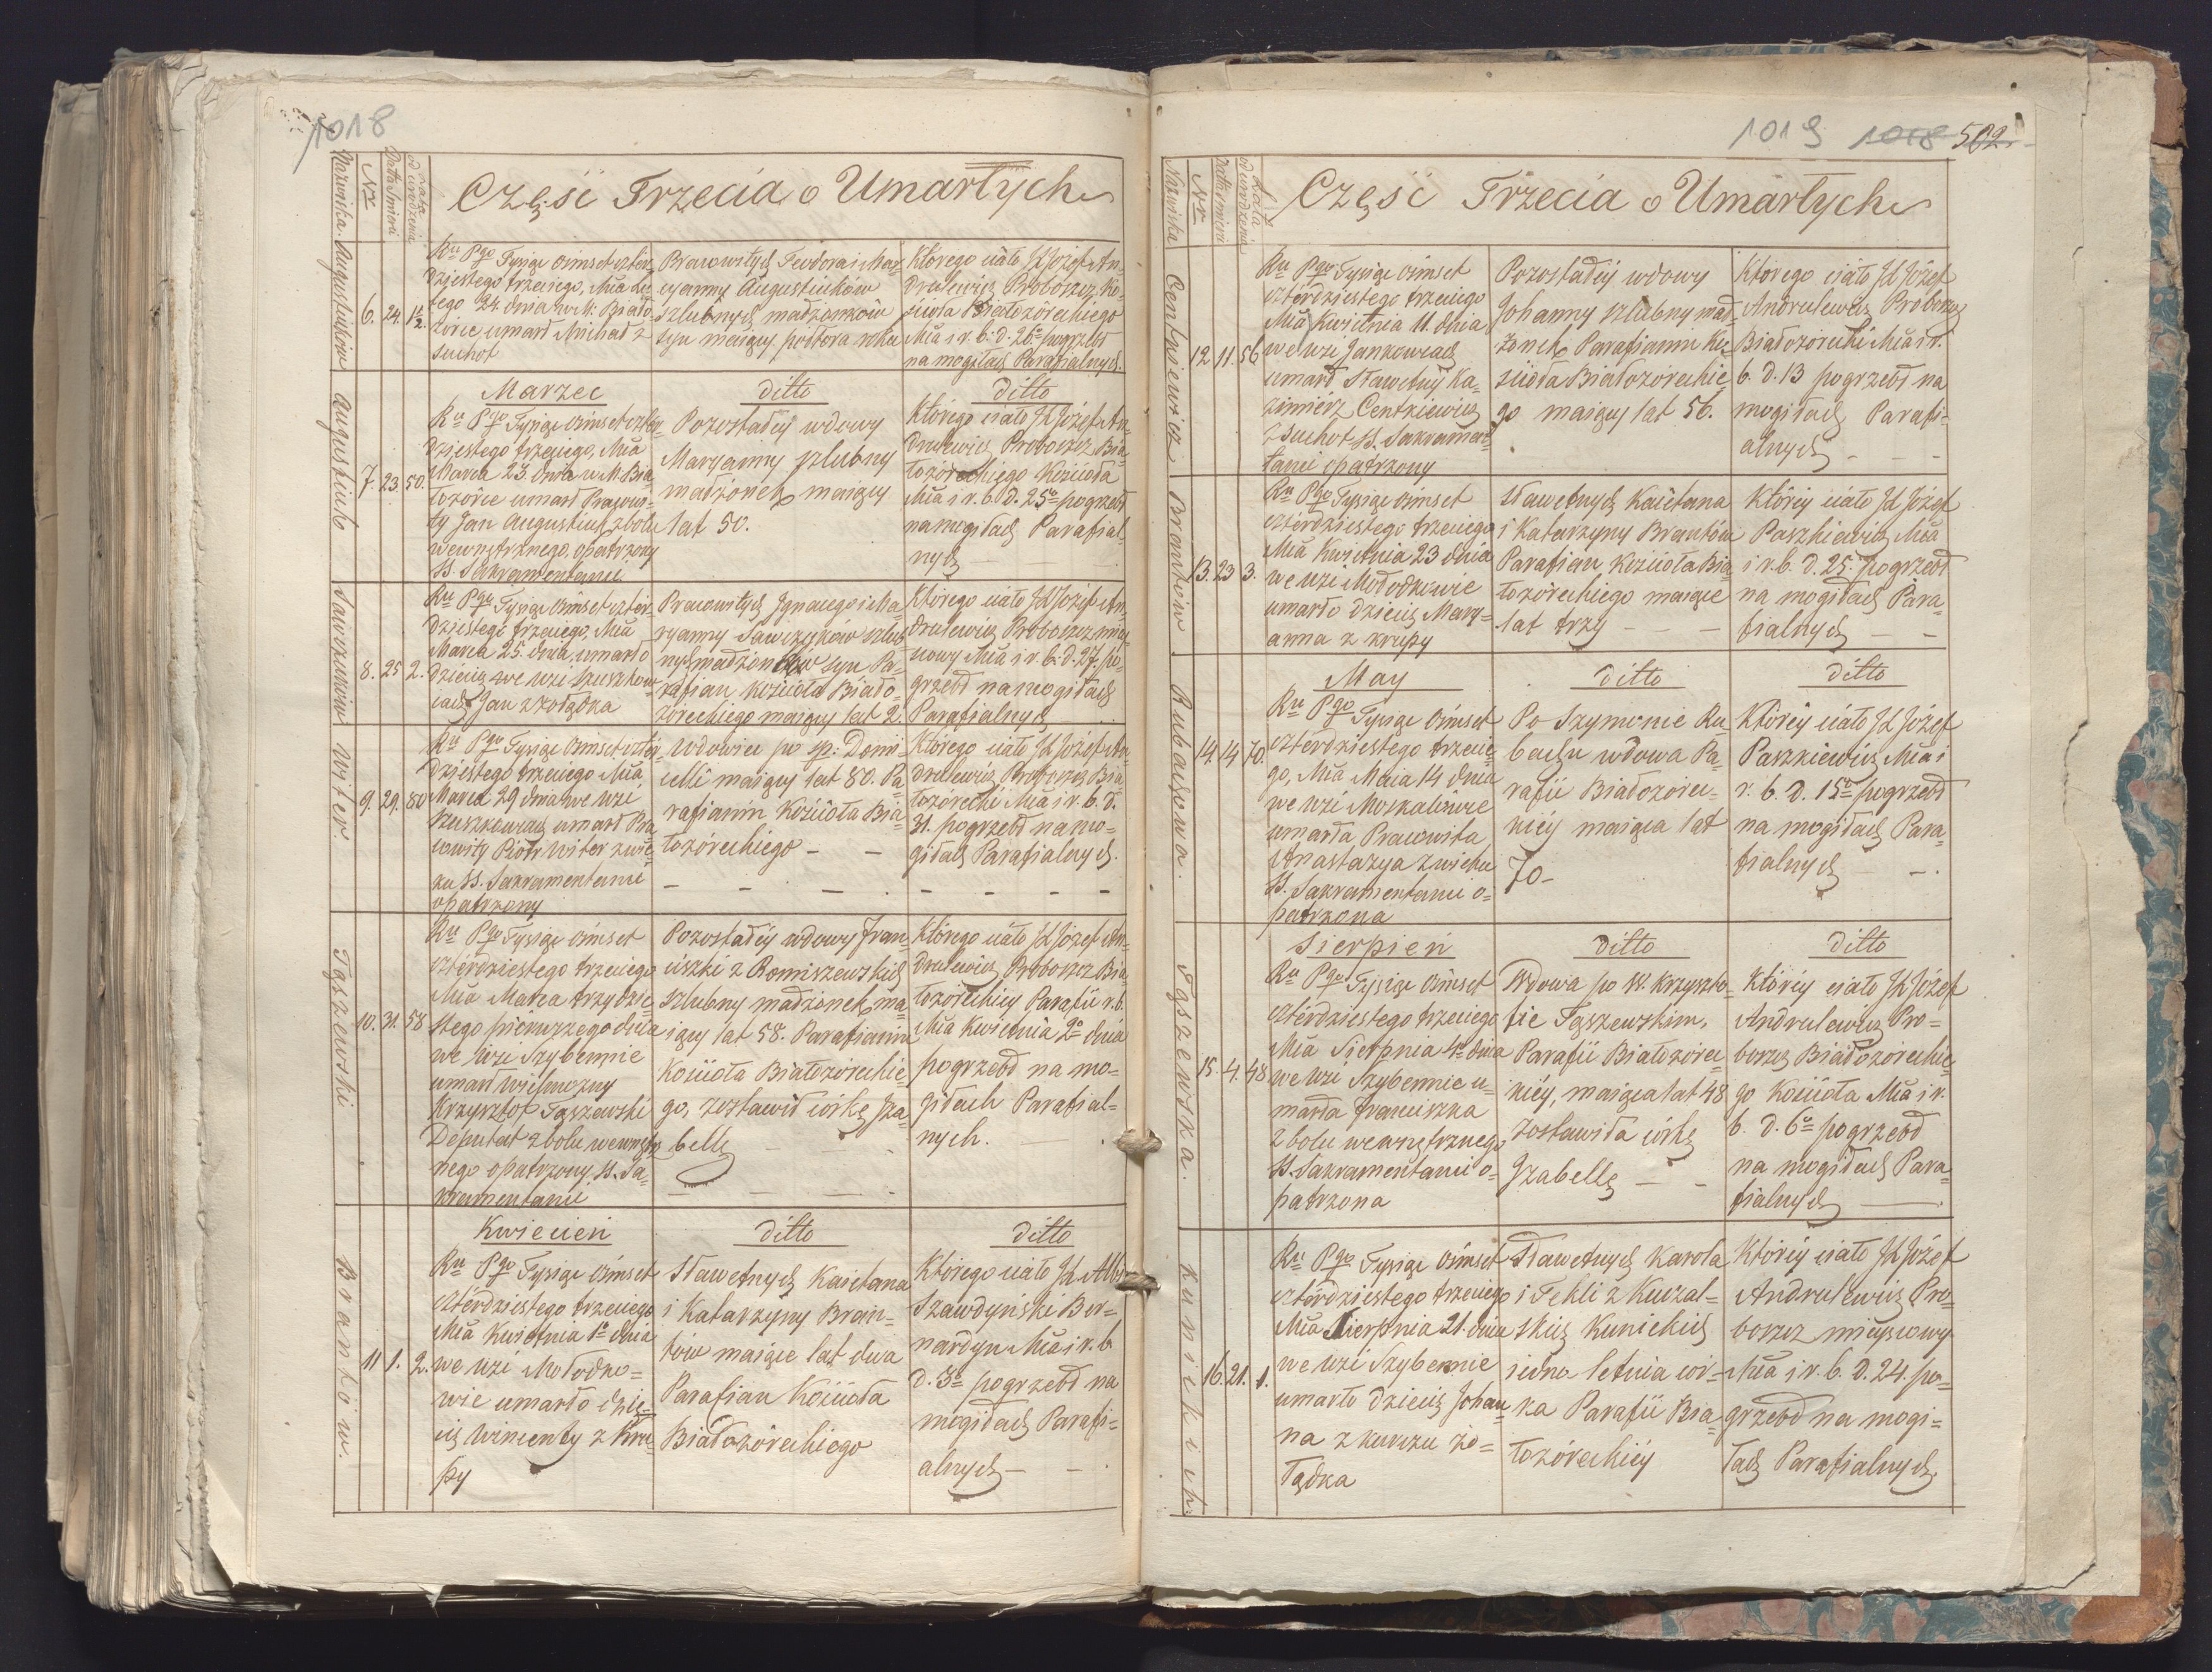 1018
Nazwiska. Nr Data Śmierci Lata od urodzenia
Część Trzecia o Umarłych
Augustiuków
6. 24. 1½.
Ru Pgo Tysiąc ośmset czter-
dziestego trzeciego, Mca Lu-
tego 24. dnia w M. Biało-
zórce umarł Michał z
suchot
Pracowitych Teodora i Mar-
yanny Augustiuków
szlubnych małżonków
syn maiący półtora roku
Którego ciało JX Józef An-
drulewicz Proboszcz Ko-
ścioła Białozóreckiego
Mca i r. b. d. 26o pogrzebł
na mogiłach Parafialnych.
Augustiuk
7. 23. 50.
Marzec
Ru Pgo Tysiąc ośmset czter-
dziestego trzeciego, Mca
Marca 23. dnia w M. Bia-
łozórce umarł Pracowi-
ty Jan Augustiuk z bolu
wewnętrznego, opatrzony
SS. Sakramentami.
ditto
Pozostałéy wdowy
Maryanny szlubny
małżonek maiący
lat 50.
ditto
Którego ciało JX Józef An-
drulewicz Proboszcz Bia-
łozóreckiego Kościoła
Mca i r. b. D. 25o pogrzebł
na mogiłach Parafial-
nych
Sawczuków
8. 25 2.
Ru Pgo Tysiąc Ośmset czter-
dziestego trzeciego, Mca
Marca 25. dnia, umarło
dziecię we wsi
Jan z żołądka
Pracowitych Ignacego i Ma-
ryanny szlub-
nych małżonków syn Pa-
rafian Kościoła Biało-
zóreckiego maiący lat 2.
Którego ciało JX Józef An-
drulewicz Proboszcz miey-
scowy Mca i r. b. d. 27. po-
grzebł na mogiłach
Parafialnych
Wyter.
9. 29. 80
Ru Pgo Tysiąc Ośmset czter-
dziestego trzeciego Mca
Marca 29 dnia we wsi
umarł Pra-
cowity Piotr Witer z wie-
ku SS. Sakramentami
opatrzony
Wdowiec po śp: Domi-
celli maiący lat 80. Pa-
rafianin Kościoła Bia-
łozóreckiego - -
Którego ciało JX Józef An-
drulewicz Proboszcz Bia-
łozórecki Mca i r. b. d.
31. pogrzebł na mo-
giłach Parafialnych.
Tąszewski
10. 31. 58
Ru Pgo Tysiąc ośmset
czterdziestego trzeciego
Mca Marca trzydzie-
stego pierwszego dnia
we wsi Szybennie
umarł Wielmożny
Krzysztof Tąszewski
Deputat z bolu wewnętrz-
nego opatrzony SS. Sa-
kramentami
Pozostałéy wdowy Fran-
ciszki z Romiszewskich
szlubny małżonek ma-
iący lat 58. Parafianin
Kościoła Białozóreckie-
go, zostawił córkę Iza-
bellę
Którego ciało JX Józef An-
drulewicz Proboszcz Bia-
łozóreckiey Parafii r. b.
Mca Kwietnia 2o dnia
pogrzebł na mo-
giłach Parafial-
nych.
Brantów.
11 1. 2.
Kwiecień
Ru Pgo Tysiąc Ośmset
czterdziestego trzeciego
Mca Kwietnia 1o dnia
we wsi Mołodko-
wie umarło dzie-
cię Wincenty z kru-
py
ditto
Sławetnych Kaietana
i Katarzyny Bran-
tów maiące lat dwa
Parafian Kościoła
Białozóreckiego
ditto
Którego ciało JX Alb:
Szawdyński Ber-
nardyn Mca i r. b
d. 3o pogrzebł na
mogiłach Parafi-
alnych - -
1019 1018 502.
Nazwiska Nro Data Śmierci Lata od urodzenia
Część Trzecia o Umarłych
Centkiewicz
12 11. 56
Ru Pgo Tysiąc ośmset
czterdziestego trzeciego
Mca Kwietnia 11. dnia
we wsi Jankowcach
umarł Sławetny Ka-
zimierz Centkiewicz
z suchot SS. Sakramen-
tami opatrzony
Pozostałéy wdowy
Johanny szlubny mał-
żonek, Parafianin Ko-
ścioła Białozóreckie-
go maiący lat 56.
Którego ciało JX Józef
Andrulewicz Proboszcz
Białozórecki Mca i r.
b. d. 13 pogrzebł na
mogiłach Parafi-
alnych - - -
Brantów
13. 23 3.
Ru Pgo Tysiąc ośmset
czterdziestego trzeciego
Mca Kwietnia 23 dnia
we wsi Mołodkowie
umarło dziecię Mary-
anna z krupy
Sławetnych Kaietana
i Katarzyny Brantów
Parafian Kościoła Bia-
łozóreckiego maiące
lat trzy - - -
Któréy ciało JX Józef
Paszkiewicz Mca
i r. b. d. 25. pogrzebł
na mogiłach Para-
fialnych - -
Rubachowa.
14. 14 70.
May
Ru Pgo Tysiąc ośmset
czterdziestego trzecie-
go, Mca Maia 14 dnia
we wsi Moskalówce
umarła Pracowita
Anastazya z wieku
SS. Sakramentami o-
patrzona
ditto
Po Szymonie Ru-
bachu wdowa Pa-
rafii Białozórec-
kiéy maiąca lat
70-
ditto
Któréy ciało JX Józef
Paszkiewicz Mca i
r. b. D. 15o pogrzebł
na mogiłach Para-
fialnych - -.
Tąszewska.
15. 4. 48
Sierpień
Ru Pgo Tysiąc Ośmset
czterdziestego trzeciego
Mca Sierpnia 4o dnia
we wsi Szybennie u-
marła Franciszka
z bolu wewnętrznego
SS. Sakramentami o-
patrzona
ditto
Wdowa po W. Krzyszto-
fie Tąszewskim,
Parafii Białozórec-
kiéy, maiąca lat 48
zostawiła córkę
Izabellę - -
ditto
Któréy ciało JX Józef
Andrulewicz Pro-
boszcz Białozóreckie-
go Kościoła Mca i r.
b. d. 6o pogrzebł
na mogiłach Para-
fialnych
Kunickich.
16. 21. 1.
Ru Pgo Tysiąc Ośmset
czterdziestego trzeciego
Mca Sierpnia 21. dnia
we wsi Szybennie
umarło dziecię Johan-
na z kurczu żo-
łądka
Sławetnych Karola
i Tekli z Kuczal-
skich Kunickich
iedno letnia cór-
ka Parafii Bia-
łozóreckiéy
Któréy ciało JX Józef
Andrulewicz Pro-
boszcz mieyscowy
Mca i r. b. d. 24. po-
grzebł na mogi-
łach Parafialnych.